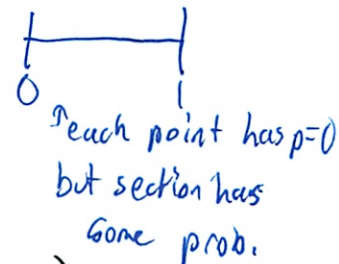 0 1
each point has p=0
but section has
some prob.